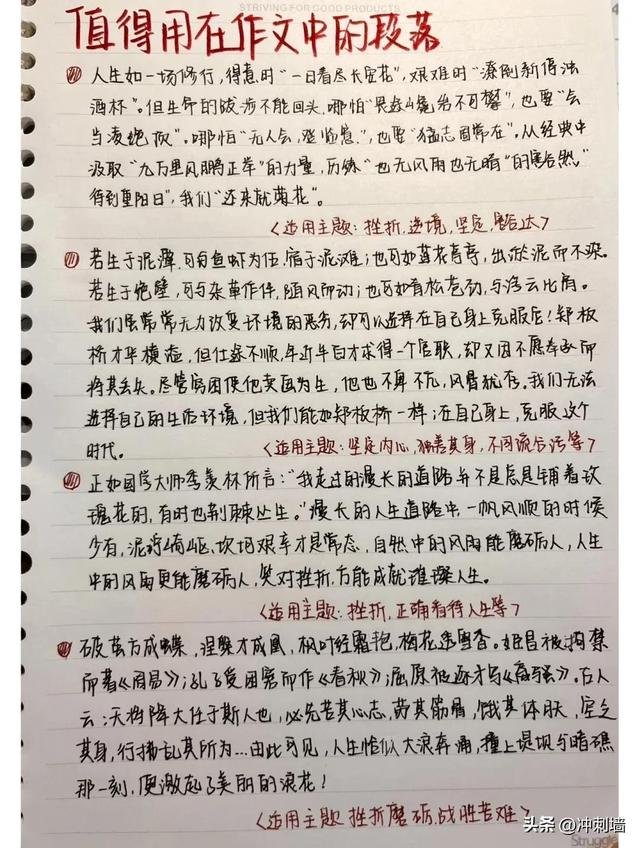 STRIVING FOR GOOD PRODUCTS
值得用在作文中的段落
人生如一场修行，得意时“一日看尽长安花”，艰难时“潦倒新停浊
酒杯”。但生命的跋步不能回头，哪怕“畏途巉岩不可攀”，也要“会
当凌绝顶”。哪怕“无人会，登临意”，也要“猛志固常在”。从经典中
汲取“九万里风鹏正举”的力量，历练“也无风雨也无晴”的豁然“
待到重阳日”，我们“还来就菊花”。
<适用主题：挫折，逆境，坚定，豁达>
若生于泥潭，可与鱼虾为伍，宿于泥滩；也可如莲花亭亭，出淤泥而不染。
若生于绝壁，可与杂草作伴，随风而动；也可如青松苍劲，与浮云比肩。
我们虽常常无力改变环境的恶劣，却可以选择在自己身上克服它！郑板
桥才华横溢，但仕途不顺，年近半百才求得一个官职，却又因不愿奉承而
将其丢失。尽管穷困使他卖画为生，他也不卑不亢，风骨犹存。我们无法
选择自己的生活环境，但我们能如郑板桥一样：在自己身上，克服这个
时代。
<适用主题：坚定内心，独善其身，不同流合污等>
正如国学大师季羡林所言：“我走过的漫长的道路并不是总是铺着玫
瑰花的，有时也荆棘丛生。”漫长的人生道路中，一帆风顺的时候
少有，泥泞崎岖、坎坷艰辛才是常态，自然中的风雨能磨砺人，人生
中的风雨更能磨砺人，笑对挫折，方能成就璀璨人生。
<适用主题：挫折，正确看待人生等>
破茧方成蝶，涅槃才成凰，枫叶经霜艳，梅花透雪香。姬昌被拘禁
而著《周易》；孔子受困窘而作《春秋》；屈原被逐才写《离骚》。古人
云：天将降大任于斯人也，必先苦其心志，劳其筋骨，饿其体肤，空乏
其身，行拂乱其所为...由此可见，人生恰似大浪奔涌，撞上堤坝与暗礁
那一刻，便激起了美丽的浪花！
<适用主题 挫折磨砺，战胜苦难>
头条 @冲刺墙
Struggle